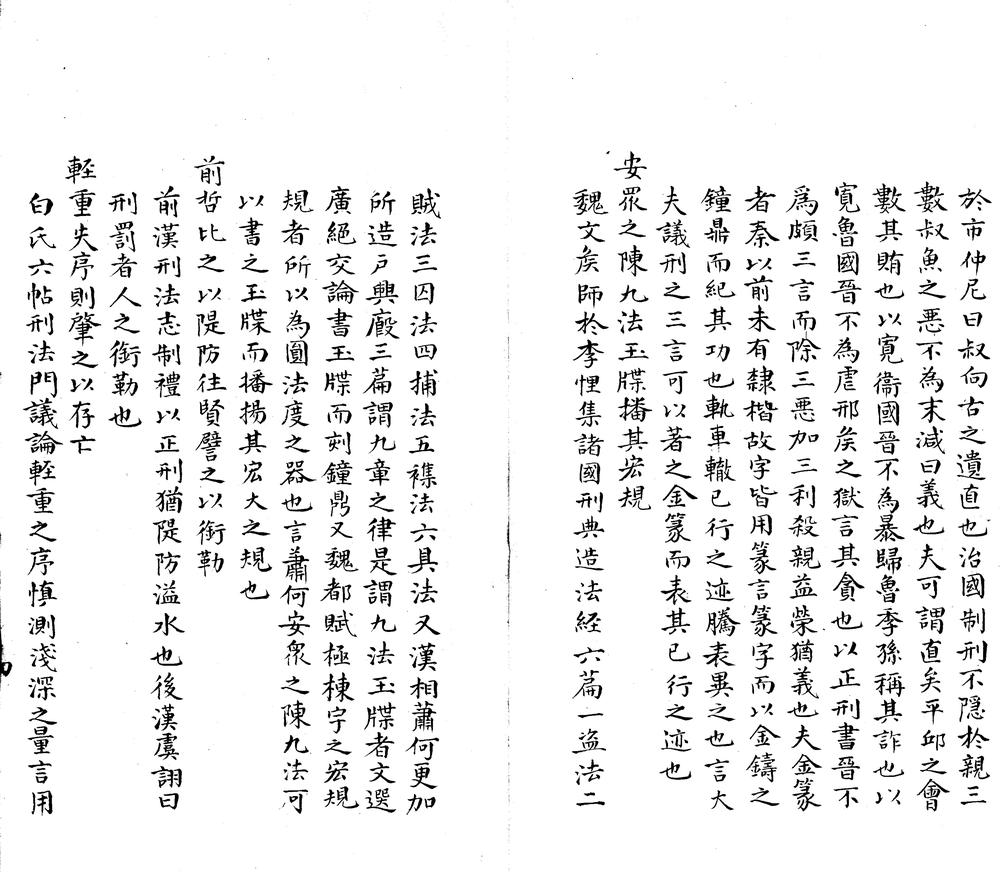 於市仲尼曰叔向古之遺直也治國制刑不隱於親三
數叔魚之悪不為末減曰義也夫可謂直矣平邱之會
數其賄也以寛衞國晉不為暴歸魯季孫稱其詐也以
寛魯國晉不為虐邢矦之獄言其貪也以正刑書晉不
爲頗三言而除三悪加三利殺親益榮猶義也夫金篆
者秦以前未有隸楷故字皆用篆言篆字而以金鑄之
鐘鼎而紀其功也軌車轍已行之迹騰表異之也言大
夫議刑之三言可以著之金篆而表其已行之迹也
安眾之陳九法玉牒播其宏規
魏文矦師於李悝集諸國刑典造法経六篇一盗法二
賊法三囚法四捕法五襍法六具法又漢相蕭何更加
所造户興廄三篇謂九章之律是謂九法玉牒者文選
廣絕交論書玉牒而刻鐘鼎又魏都賦極棟宇之宏規
規者所以為圓法度之器也言蕭何安眾之陳九法可
以書之玉牒而播揚其宏大之規也
前哲比之以隄防往賢譬之以銜勒
前漢刑法志制禮以正刑猶隄防溢水也後漢虞詡曰
刑罰者人之銜勒也
輊重失序則肇之以存亡
白氏六帖刑法門議論輊重之序慎測淺深之量言用